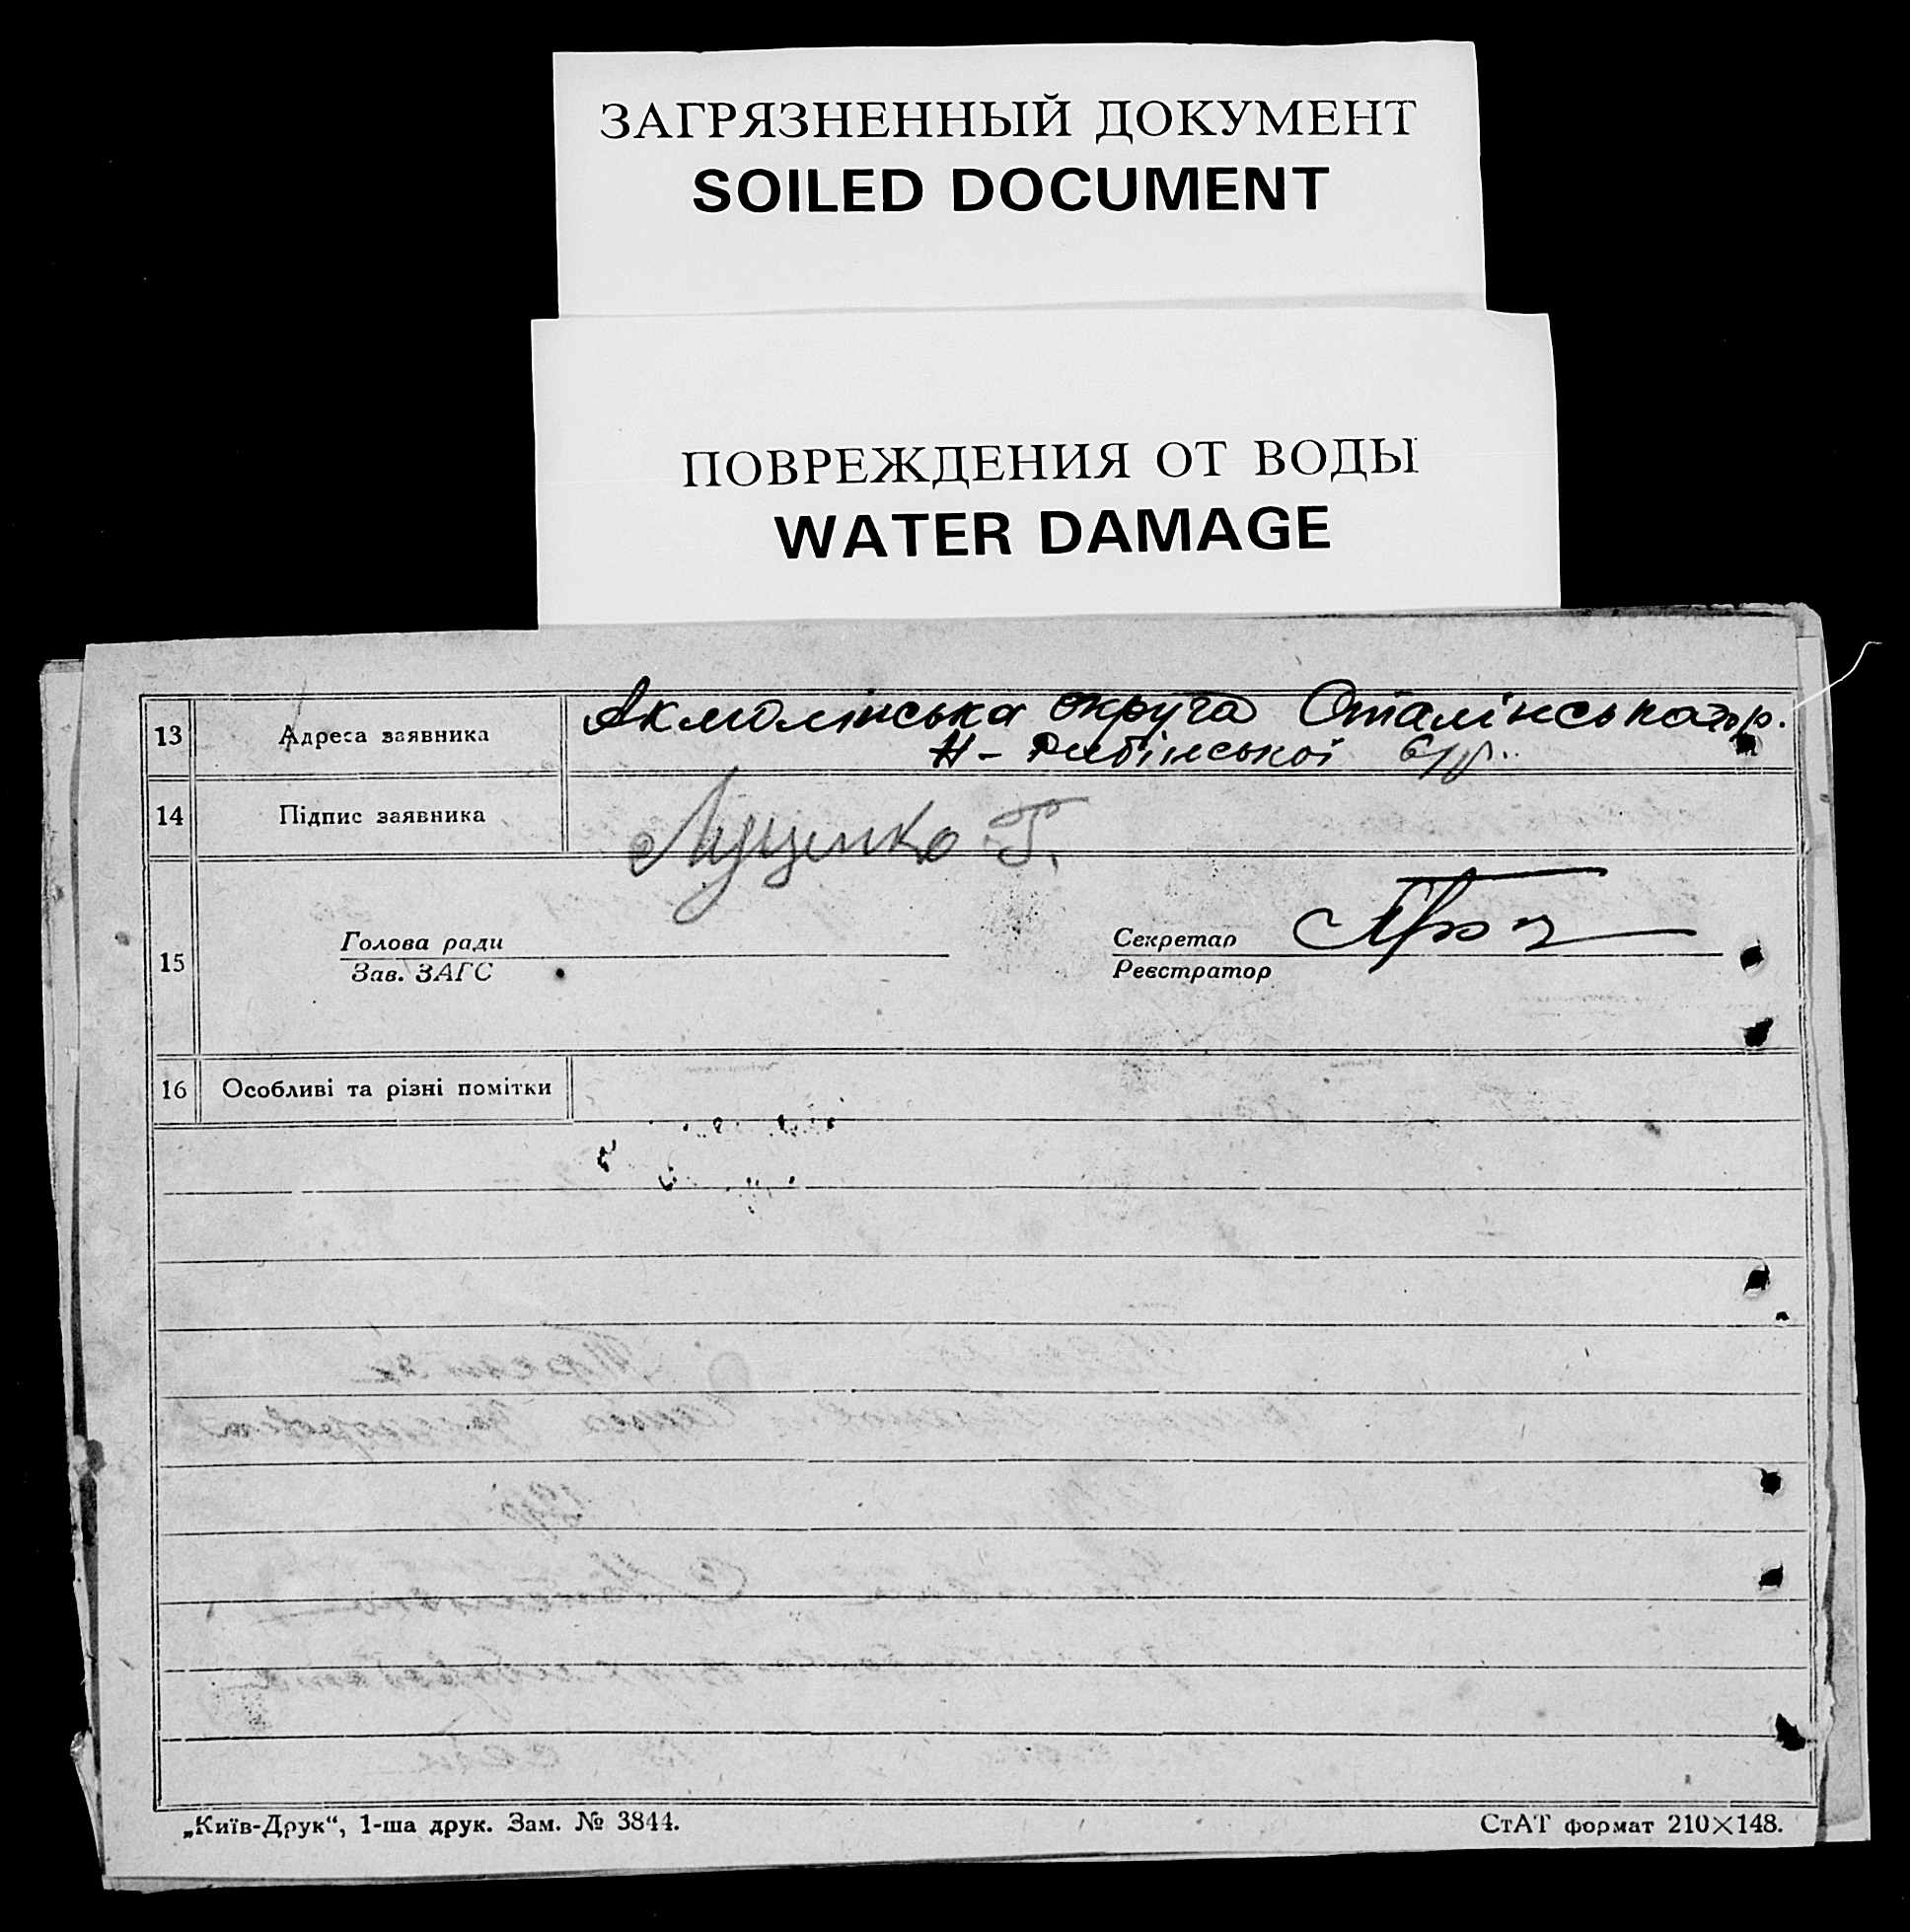 ЗАГРЯЗНЕННЫЙ ДОКУМЕНТ
SOILED DOCUMENT
ПОВРЕЖДЕНИЯ ОТ ВОДЫ
WATER DAMAGE
13 Адреса заявника Акмолінська округа Сталінська
14 Підпис заявника Луценко Г.
Голова ради Секретар
15
Зав. ЗАГС Реєстратор
16 Особливі та різні помітки
„Київ-Друк“, 1-ша друк. Зам. № 3844. СтАТ формат 210×148.